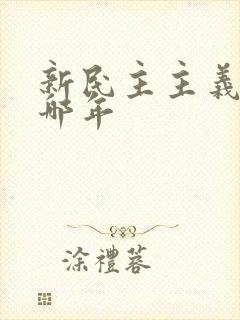 新民主主義
哪年
涂禮蓉